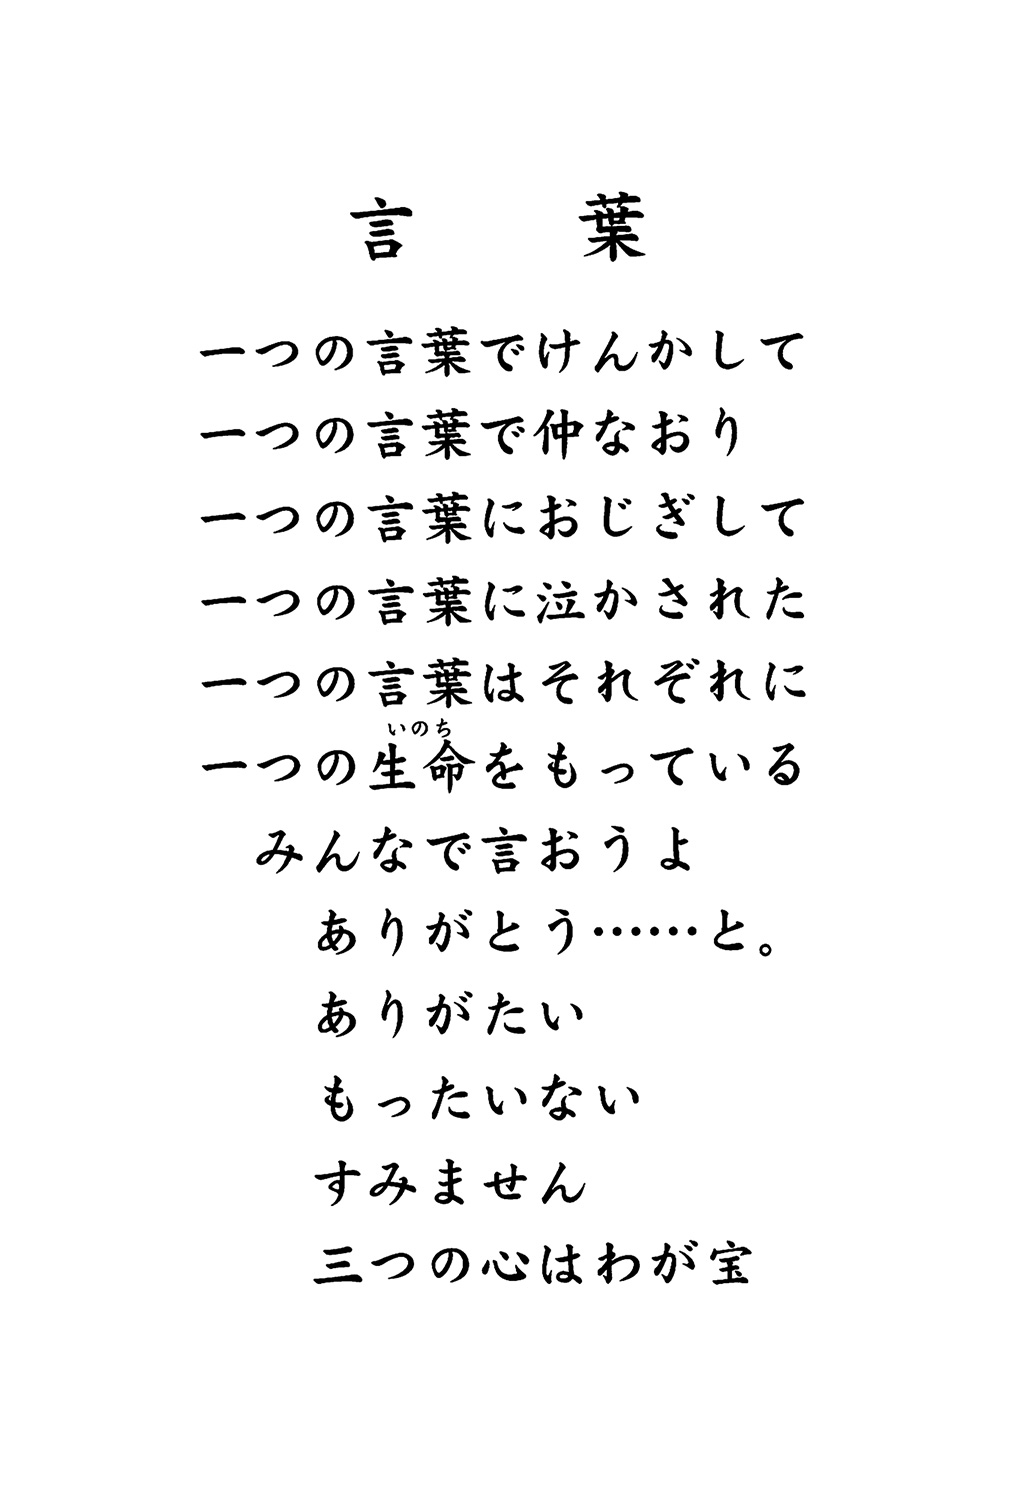 言　葉
一つの言葉でけんかして
一つの言葉で仲なおり
一つの言葉におじぎして
一つの言葉に泣かされた
一つの言葉はそれぞれに
いのち
一つの生命をもっている
みんなで言おうよ
ありがとう……と。
ありがたい
もったいない
すみません
三つの心はわが宝